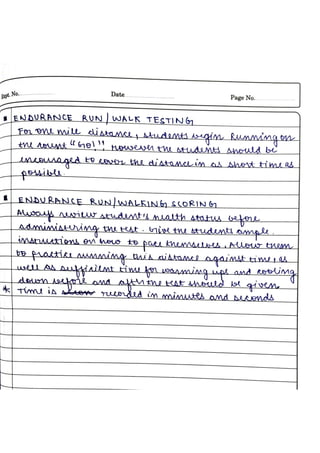 Expt. No.
Date
Page No.
ENDURANCE RUN / WALK TESTING
For one mile distance, students begin Running on
the count "GO!!" However the students should be
encouraged to cover the distance in as short time as
possible
ENDURANCE RUN/WALKING SCORING
Always review student's health status before
administering the test. Give the students ample
instructions on how to pace themselves. Allow them
to practice running this distance against time, as
well as sufficient time for warming up and cooling
down before and after the test should be given.
* Time is recorded in minutes and seconds